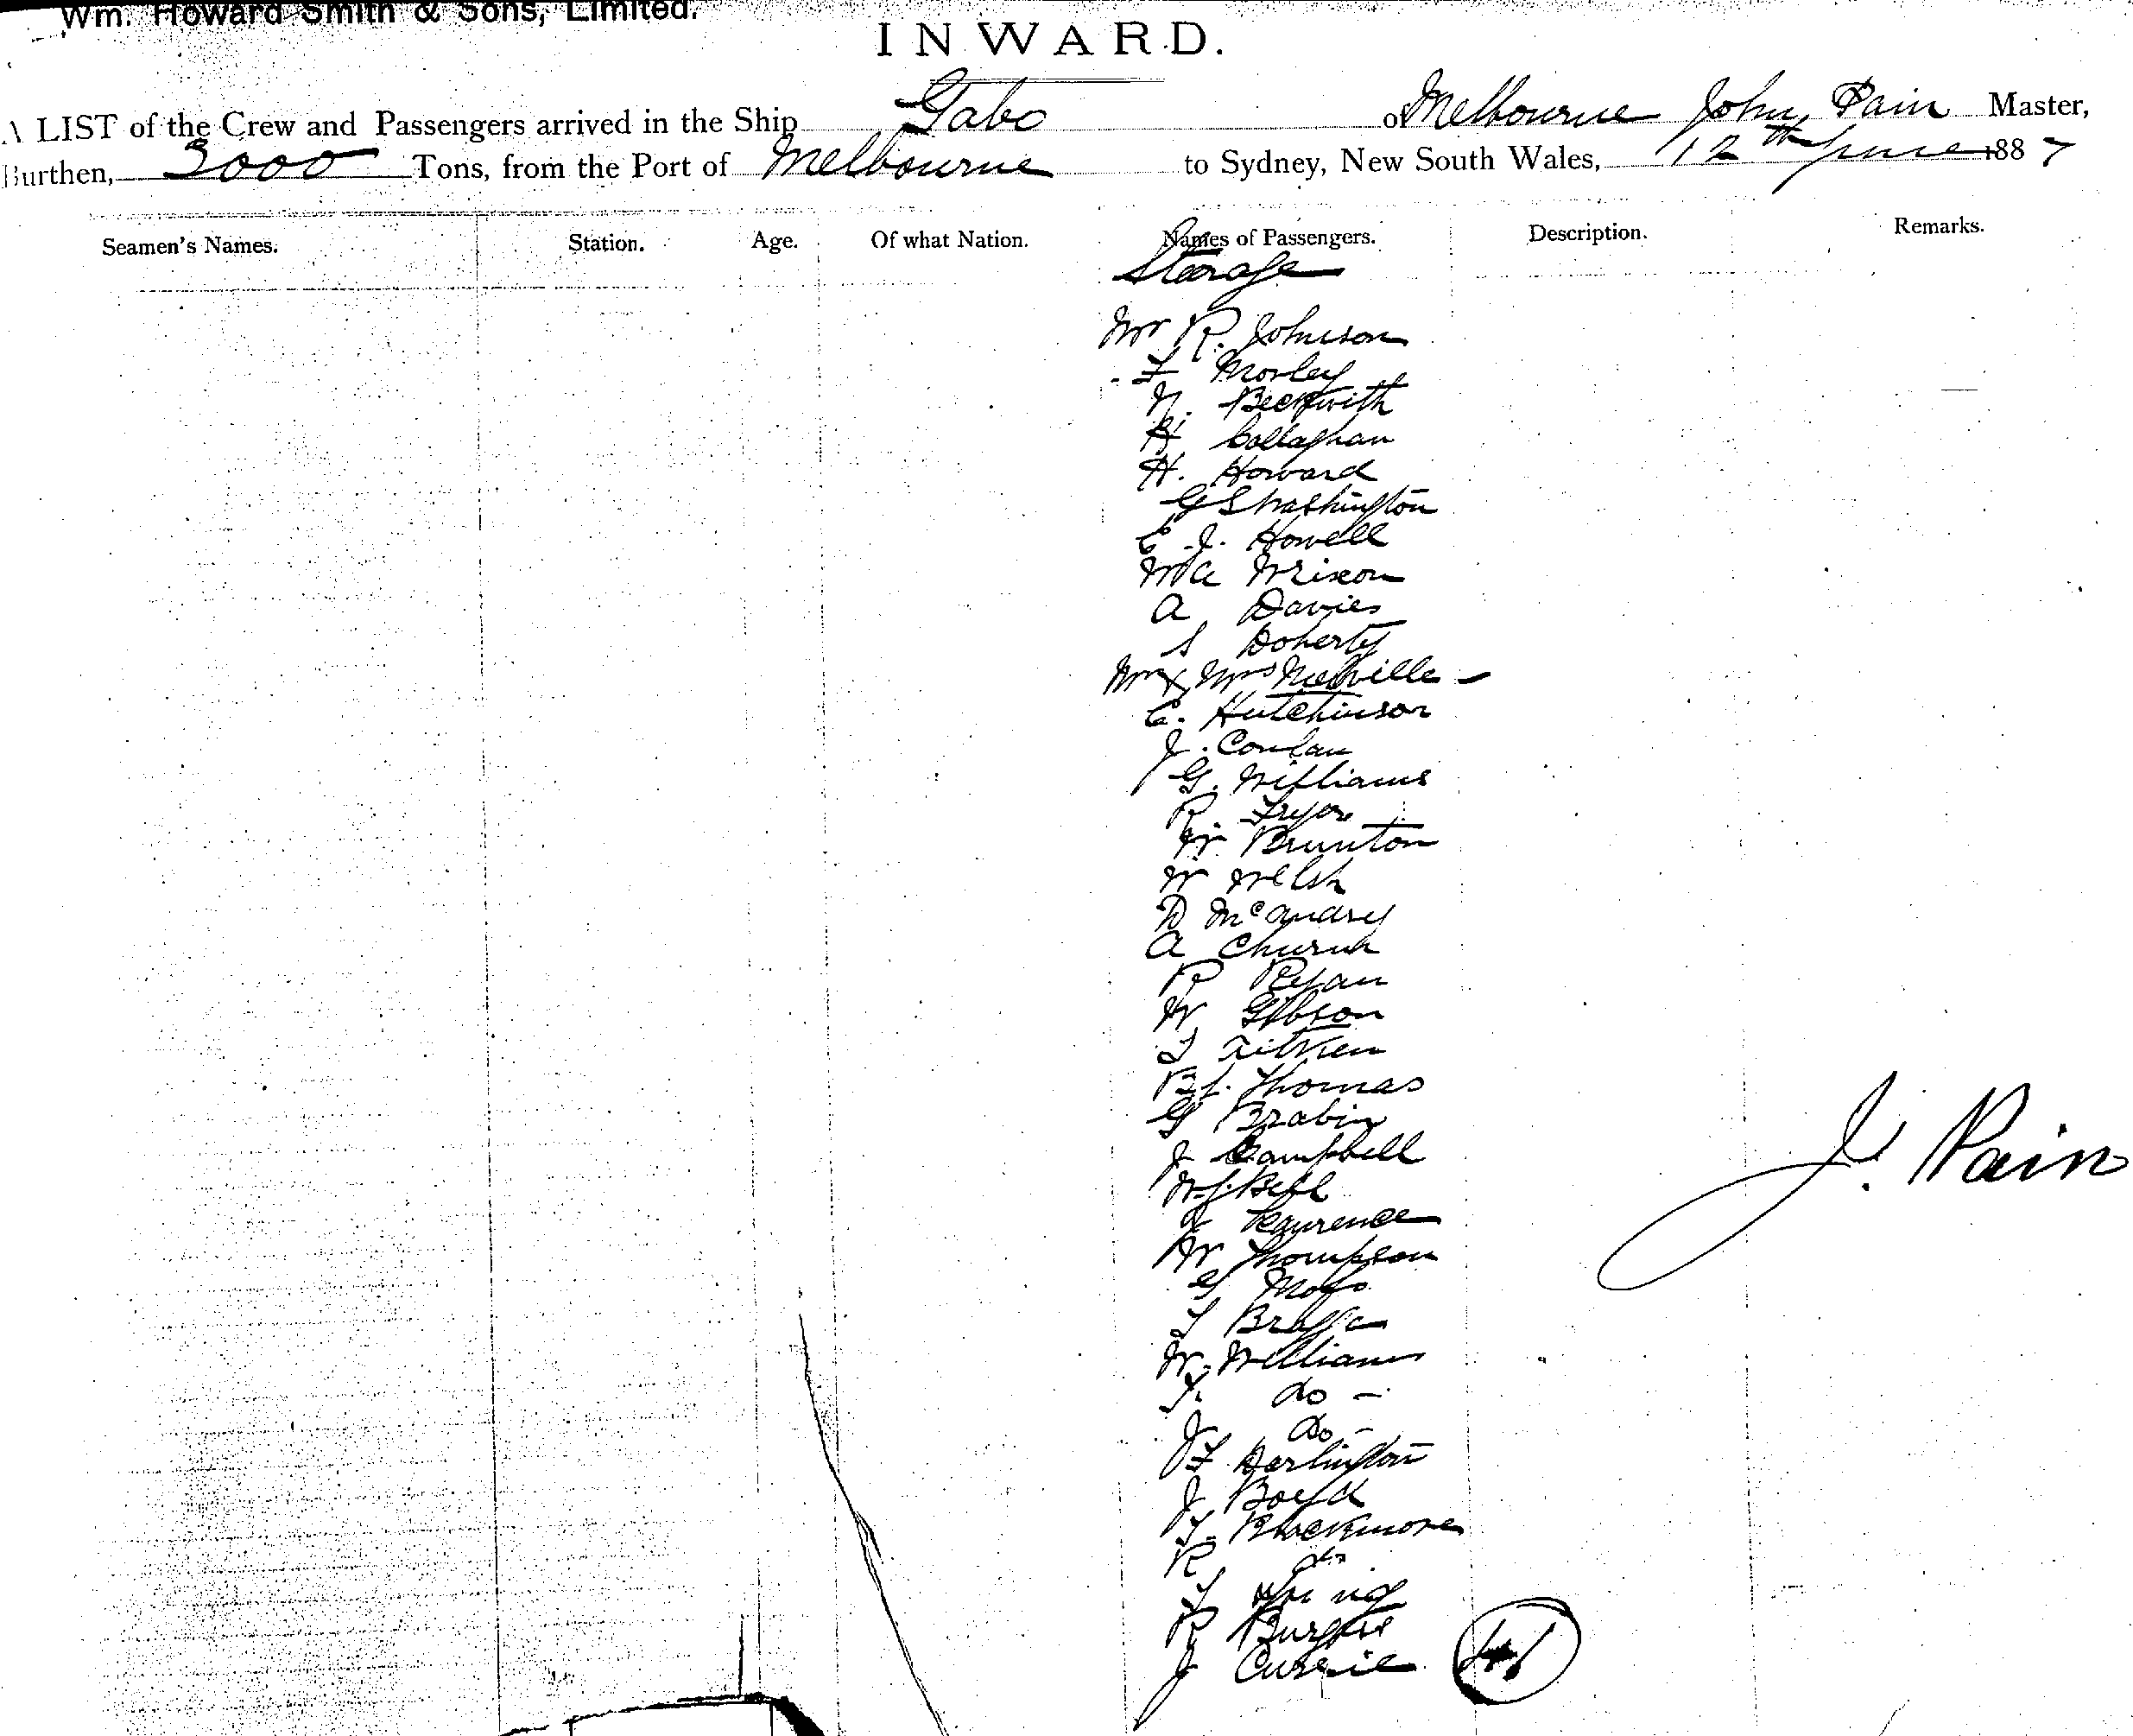 Wm. Howard Smith & Sons, Limited.
INWARD.
A LIST of the Crew and Passengers arrived in the Ship Gabo of Melbourne John Pain Master,
Burthen, 3000 Tons, from the Port of Melbourne to Sydney, New South Wales, 12th June 1887
Seamen's Names. Station. Age. Of what Nation. Names of Passengers. Description. Remarks.
Steerage
Mr R. Johnson
F Morley
N. Beckwith
H Callaghan
H. Howard
G S Washington
C. J. Howell
A Davies
S Doherty
Mr & Mrs Melville
C. Hutchinson
J. Conlan
G. Williams
R. Fryer
W. Brunton
W Welsh
D
A Church
R Ryan
W Gibson
J Aitken
B L. Thomas
G Brabin
J Campbell
W. J. Bell
J. Pain
Laurence
W Thompson
G Moss
T Bragge
W. Williams
T. do -
J do -
F Darlington
J Boyd
T. Blackmore
R do
T
R Burgess
J Currie 41